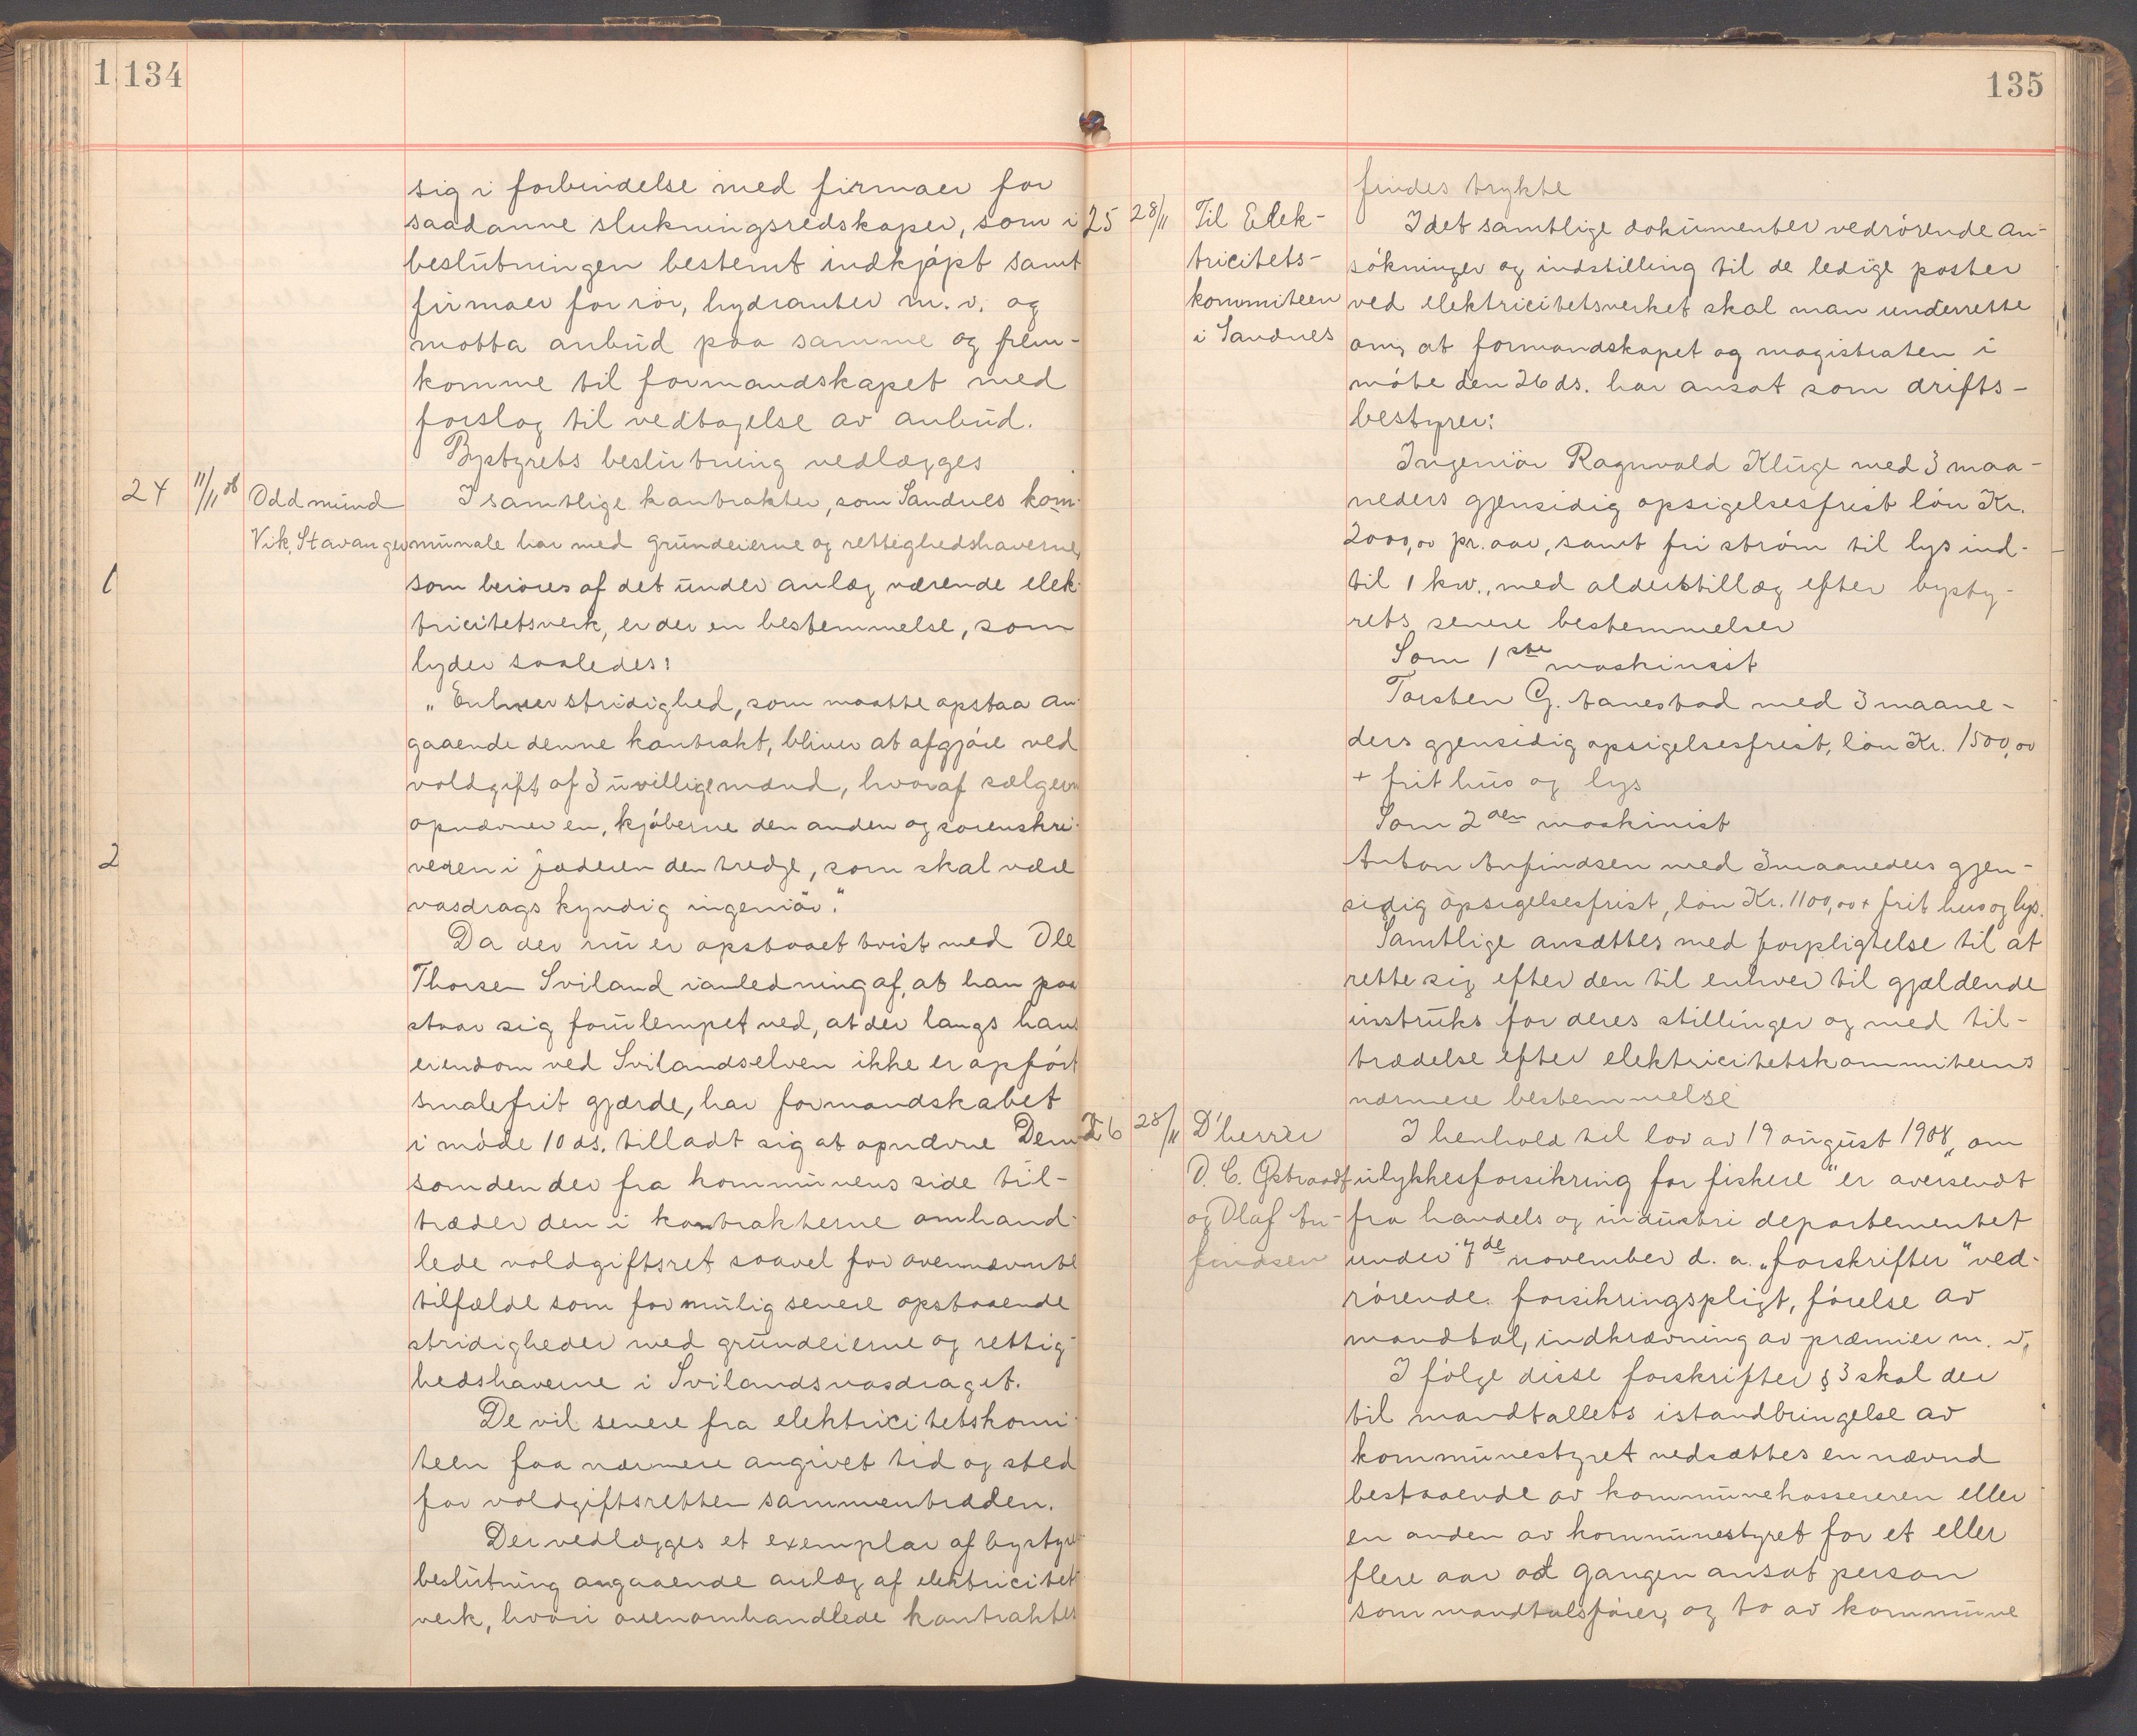 1 134
sig i forbindelse med firmaer for
saadanne slukningsredskaper, som i
beslutningen bestemt indkjøpt samt
firmaer for rør, hydranter m. v. og
motta anbud paa samme og frem-
komme til formandskapet med
forslag til vedtagelse av anbud.
Bystyrets beslutning vedlægges
24 11/11 08 Oddmund
Vik, Stavanger
I samtlige kontrakter, som Sandnes kom-
munale har med grundeierne og rettighedshaverne,
1
som berøres af det under anlæg værende elek-
tricitetsverk, er der en bestemmelse, som
lyder saaledes:
"Enhver stridighed, som maatte opstaa an-
gaaende denne kontrakt, bliver at afgjøre ved
voldgift af 3 uvillige mænd, hvoraf sælgern
opnævner en, kjøberne den anden og sorenskri-
2
veren i jæderen den tredje, som skal være
vasdrags kyndig ingeniør."
Da der nu er opstaaet tvist med Ole
Thorsen Sviland i anledning af, at han paa
staar sig forulempet ved, at der langs hans
eiendom ved Svilandselven ikke er opført
smalefrit gjærde, har formandskabet
i møde 10 ds. tilladt sig at opnævne Dem
som den der fra kommunens side til-
træder den i kontrakterne omhand-
lede voldgiftsret saavel for ovennævnte
tilfælde som for mulig senere opstaaende
stridigheder med grundeierne og rettig-
hedshaverne i Svilandsvasdraget.
De vil senere fra elektricitetskomi-
teen faa nærmere angivet tid og sted
for voldgiftsretten sammentræden.
Der vedlægges et exemplar af bystyre
beslutning angaaende anlæg af elektricitet
verk, hvori ovenomhandlede kontrakter
135
findes trykte
25 28/11 Til Elek-
tricitets-
kommiteen
i Sandnes
Idet samtlige dokumenter vedrørende an-
søkninger og indstilling til de ledige poster
ved elektricitetsverket skal man underrette
om, at formandskapet og magistraten i
møte den 26 ds. har ansat som drifts-
bestyrer:
Ingeniør Ragnvald Kluge med 3 maa-
neders gjensidig opsigelsesfrist løn Kr.
2000,00 pr. aar, samt fri strøm til lys ind-
til 1 kw., med alderstillæg efter bysty-
rets senere bestemmelser
Som 1ste maskinist
Torsten G. Aanestad med 3 maane-
ders gjensidig opsigelsesfrist, løn Kr. 1500,00
+ frit hus og lys
Som 2den maskinist
Anton Anfindsen med 3 maaneders gjen-
sidig opsigelsesfrist, løn Kr. 1100,00 + frit hus og lys.
Samtlige ansættes med forpligtelse til at
rette sig efter den til enhver til gjældende
instruks for deres stillinger og med til-
trædelse efter elektricitetskommiteens
nærmere bestemmelse
26 28/11 D'herrer
O. C. Østraadt
og Olaf An-
findsen
I henhold til lov av 19 august 1908 „om
ulykkesforsikring for fiskere" er oversendt
fra handels og industri departementet
under 7de november d. a. „forskrifter" ved-
rørende forsikringspligt, førelse av
mandtal, indkrævning av præmier m. v.
I følge disse forskrifter § 3 skal der
til mandtallets istandbringelse av
kommunestyret nedsættes en nævnd
bestaaende av kommunekassereren eller
en anden av kommunestyret for et eller
flere aar ad gangen ansat person
som mandtalsfører, og to av kommune